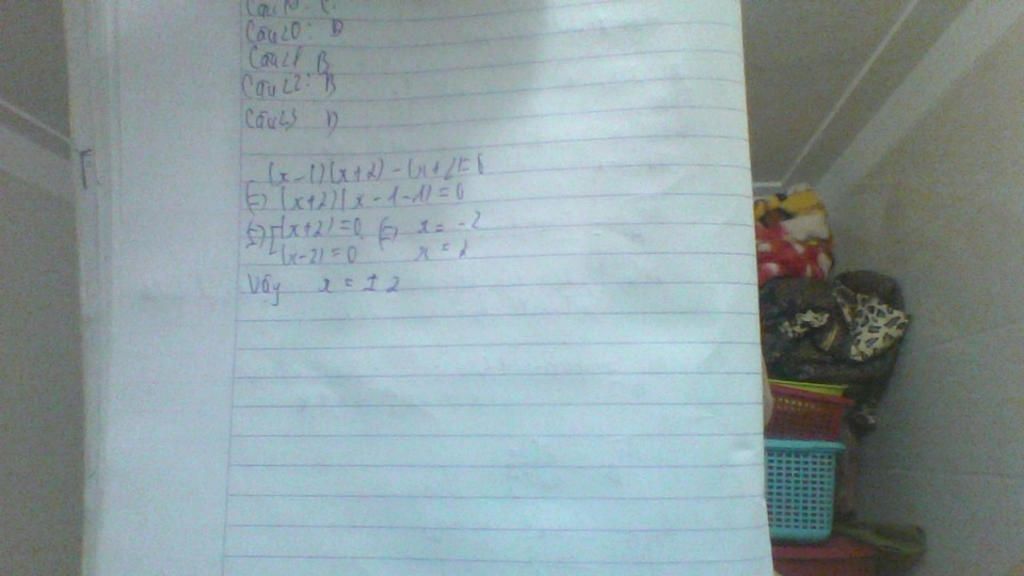 Câu 19: C
Câu 20: D
Câu 21 B
Câu 22: B
Câu 23 D
(x-1)(x+2)-(x+2)=0
(=) (x+2)(x-1-1)=0
(=) [(x+2)=0 (=) x=-2
(x-2)=0 x=2
Vậy x=±2